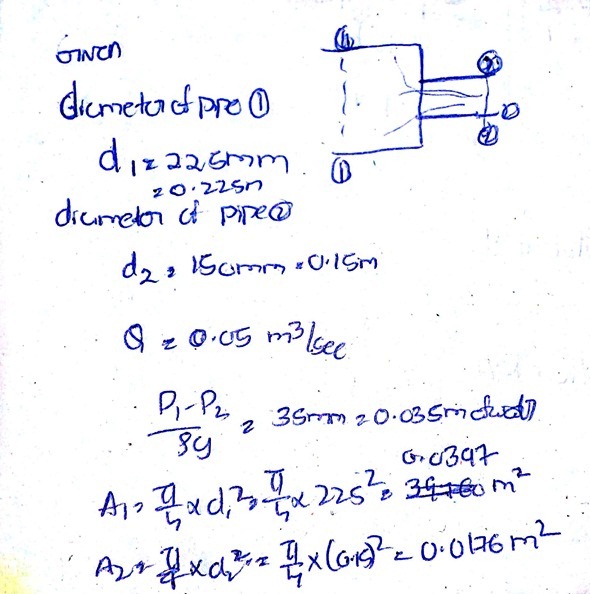 Given
① ②
diameter of pipe ①
d₁ = 225mm
= 0.225m
① ②
diameter of pipe ②
d₂ = 150mm = 0.15m
Q = 0.05 m³/sec
P₁-P₂/ρg = 35mm = 0.035m of water
0.0397
A₁ = π/4 × d₁² = π/4 × 225² = m²
A₂ = π/4 × d₂² = π/4 × (0.15)² = 0.0176 m²